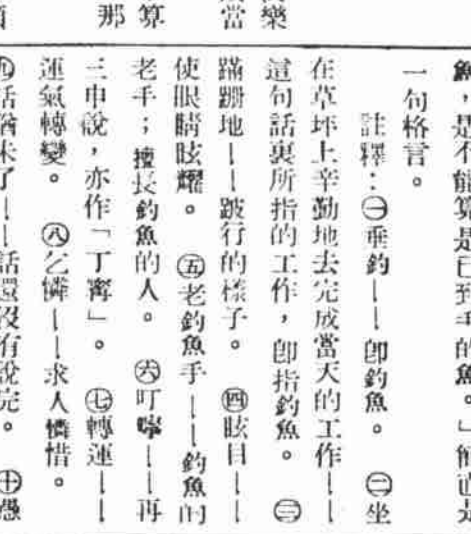 魚，是不能算是已到手的魚。」簡直是
一句格言。
註釋：㊀垂釣——卽釣魚。 ㊁坐
在草坪上辛勤地去完成當天的工作——
這句話裏所指的工作，卽指釣魚。 ㊂
蹣跚地——跛行的樣子。 ㊃眩目——
使眼睛眩耀。 ㊄老釣魚手——釣魚的
老手；擅長釣魚的人。 ㊅叮嚀——再
三申說，亦作「丁寧」。 ㊆轉運——
運氣轉變。 ㊇乞憐——求人憐惜。
㊈話猶未了——話還沒有說完。 ㊉
樂
當
算
那